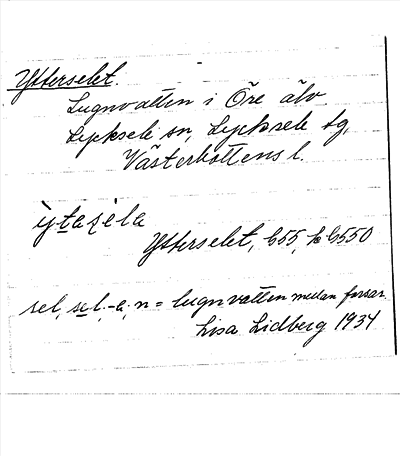 Ytterselet.
Lugnvatten i Öre älv
Lycksele sn, Lycksele tg,
Västerbottens l.
ỳtasela
Ytterselet, b55, b550
sel, sel, -a; n = lugnvatten medan forsar
Lisa Lidberg 1934